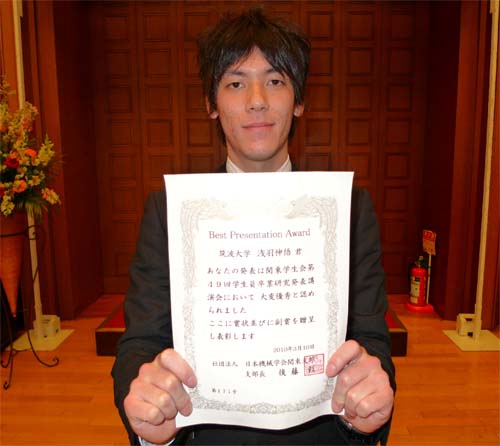 Best Presentation Award
筑波大学 浅羽伸悟 君
あなたの発表は関東学生会第
４９回学生員卒業研究発表講
演会において 大変優秀と認め
られました
ここに賞状並びに副賞を贈呈
し表彰します
2010年3月10日
社団法人 日本機械学会関東支部
支部長 後藤